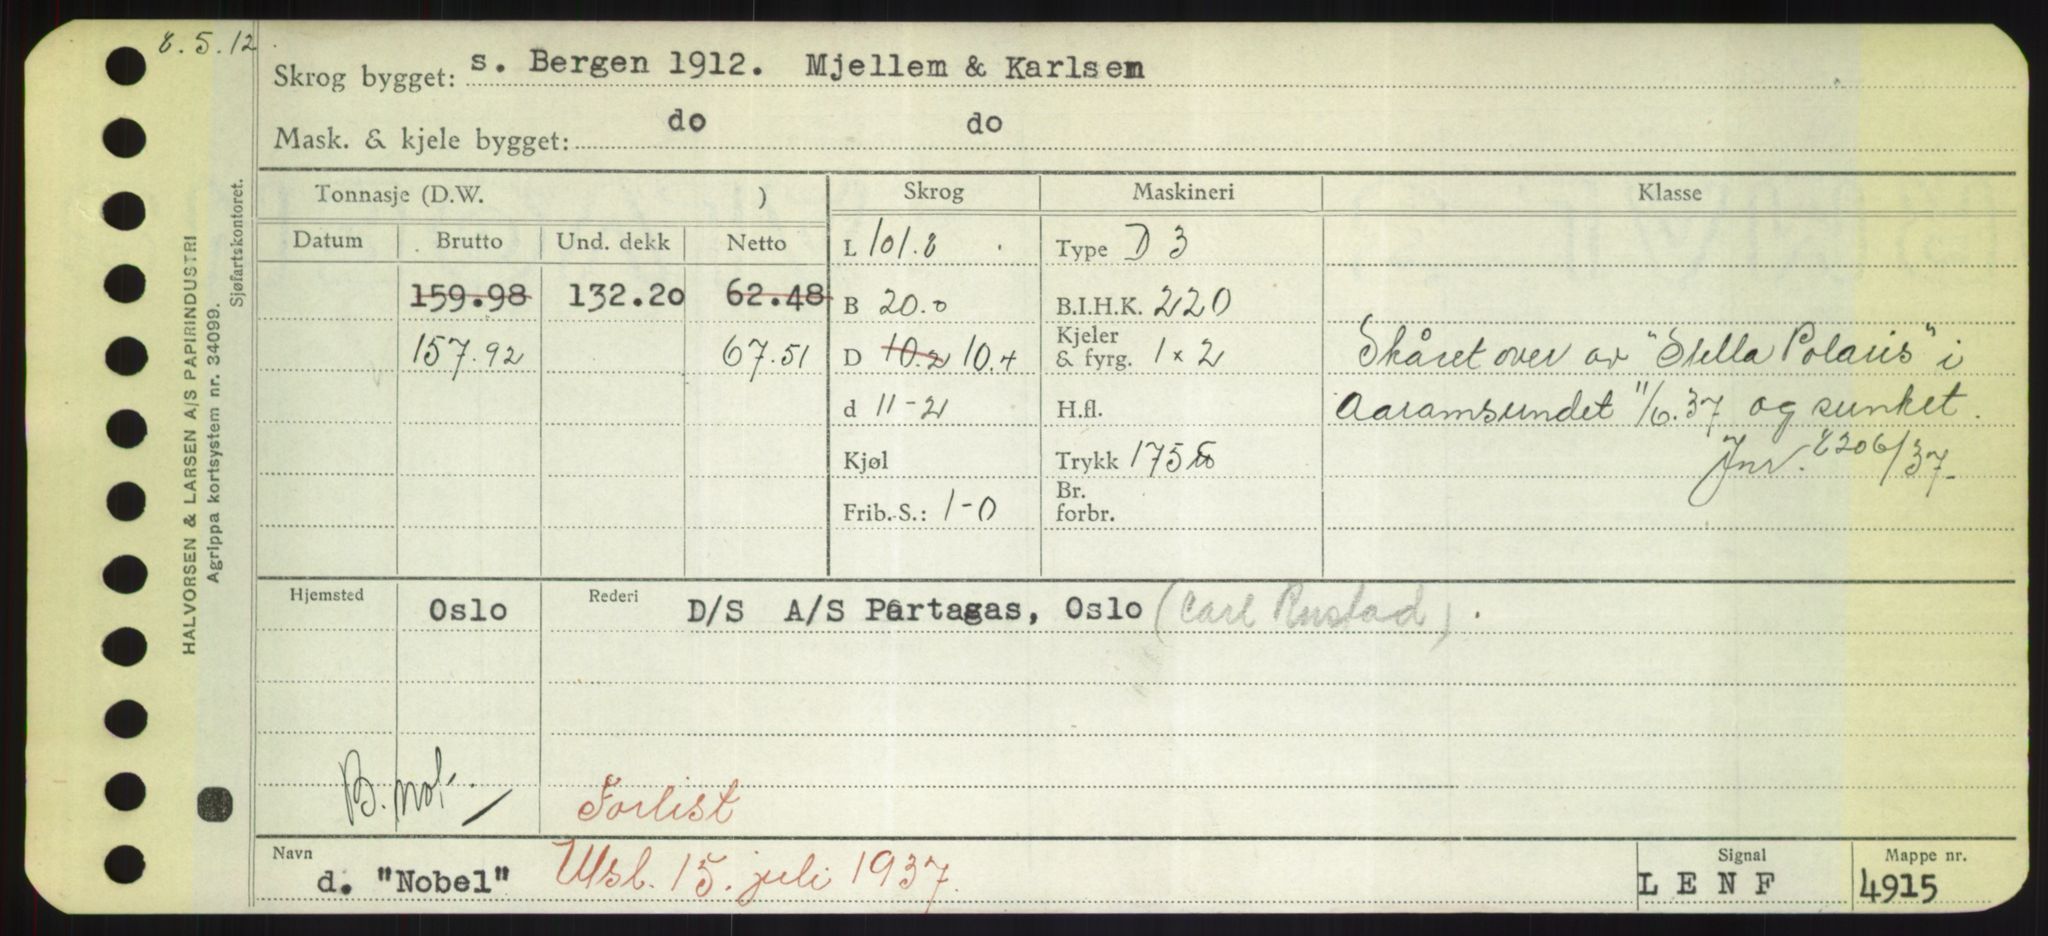 8.5.12
Skrog bygget: s. Bergen 1912. Mjellem & Karlsen
Mask. & kjele bygget: do do
HALVORSEN & LARSEN A/S PAPIRINDUSTRI
Agrippa kortsystem nr. 34099.
Sjøfartskontoret.
Tonnasje (D.W. ) Skrog Maskineri Klasse
Datum Brutto Und. dekk Netto L 101.8 Type D 3
159.98 132.20 62.48 B 20.0 B.I.H.K. 220
157.92 67.51 D 10.2 10.4 Kjeler & fyrg. 1 x 2 Skåret over av "Stella Polaris" i
d 11-2 H.fl. Aaramsundet 11/6.37 og sunket.
Kjøl Trykk 175 Jnr. 8206/37
Frib.S.: 1-0 Br. forbr.
Hjemsted Oslo Rederi D/S A/S Partagas, Oslo (Carl Rustad).
B.not.
Forlist
Navn d. "Nobel" Utsl. 15. juli 1937. Signal LENF Mappe nr. 4915